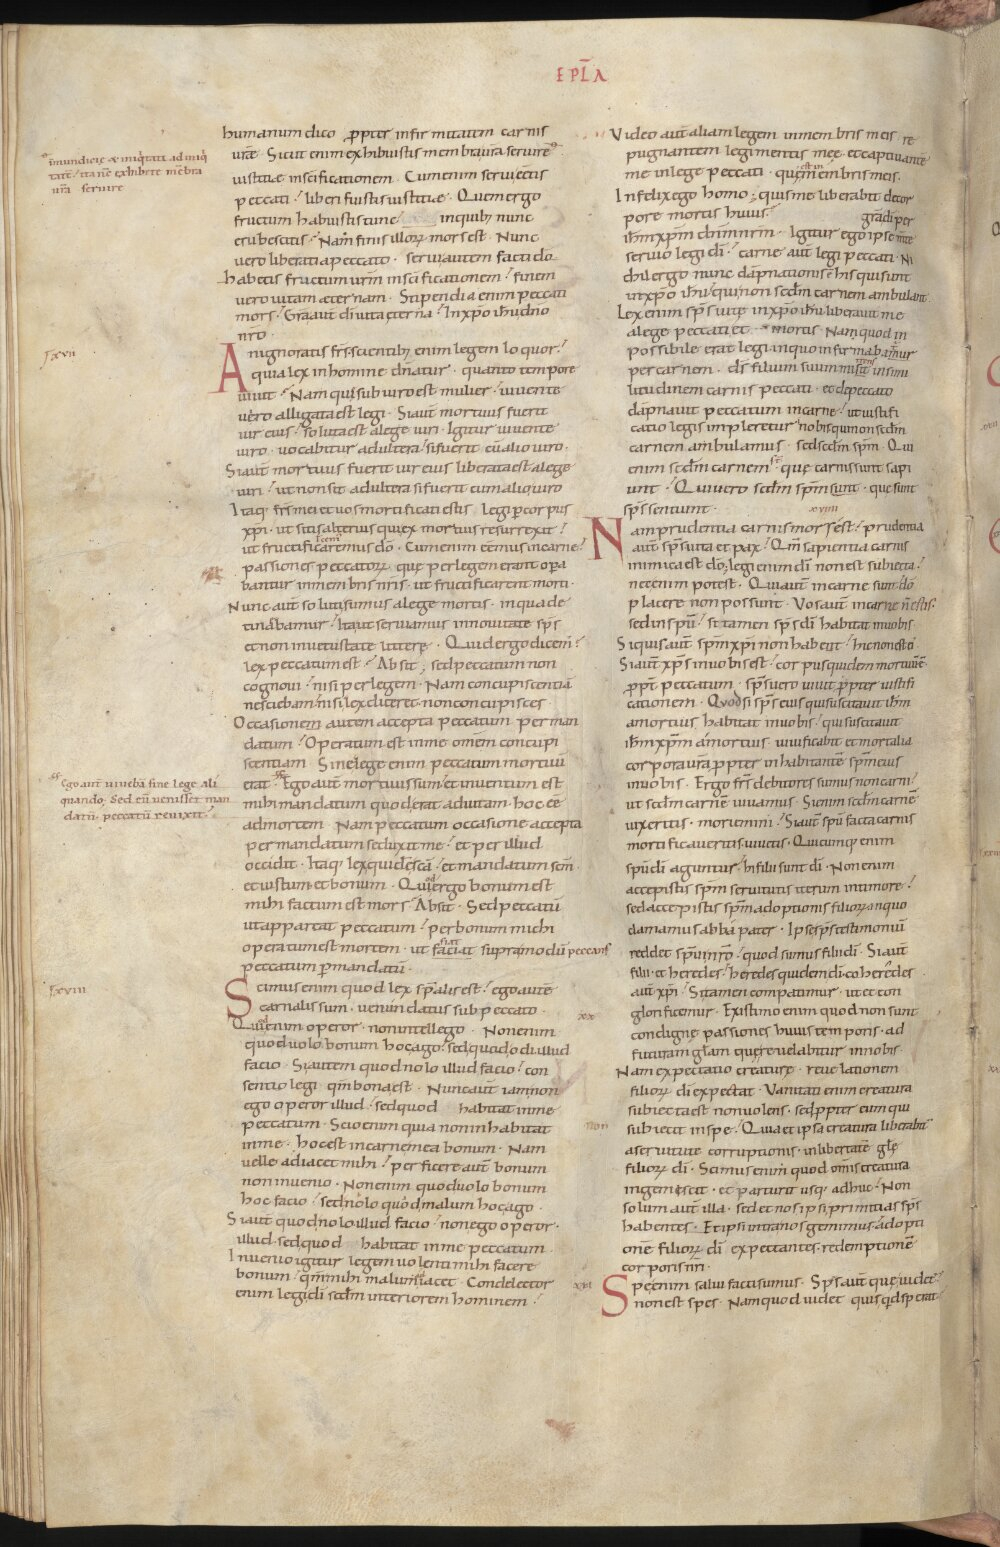 EPLA
humanum dico ꝓpter infirmitatem carnis
urāe. Sicut enim exhibuistis membra ur̄a seruire
iustitiae in sc̄ificationem. Cum enim serui essetis
peccati. liberi fuistis iustitiae. Quem ergo
fructum habuistis tunc in quib; nunc
erubescitis. Nam finis illoꝝ mors est. Nunc
uero liberati a peccato. serui autem facti dō.
habetis fructum ur̄m in sc̄ificationem. finem
uero uitam aeternam. Stipendia enim peccati
mors. Gr̄a aut̄ dī uita eterna. In xp̄o ih̄u dn̄o
nr̄o.
An ignoratis fr̄s scientib; enim legem loquor.
quia lex in homine dn̄atur. quanto tempore
uiuit. Nam quę sub uiro est mulier. uiuente
uiro alligata est legi. Si aut̄ mortuus fuerit
uir eius. soluta est a lege uiri. Igitur uiuente
uiro. uocabitur adultera. si fuerit cū alio uiro.
Si aut̄ mortuus fuerit uir eius liberata est a lege
uiri. ut non sit adultera si fuerit cum alio uiro
Itaq; fr̄s mei et uos mortificati estis legi ꝑ corpus
xp̄i. ut sitis alterius qui ex mortuis resurrexit.
ut fructificaremus dō. Cum enim eēmus in carne.
passiones peccatoꝝ. quę per legem erant opera
bantur in membris nr̄is. ut fructificarent morti.
Nunc aut̄ soluti sumus a lege mortis. in qua de
tinebamur. Ita ut seruiamus in nouitate sp̄s
et non in uetustate litterę. Quid ergo dicem̄.
lex peccatum est. Absit; sed peccatum non
cognoui. nisi per legem. Nam concupiscentiā
nesciebam. nisi lex diceret. non concupisces.
Occasionem autem accepta peccatum per man
datum. Operatum est in me om̄em concupi
scentiam. Sine lege enim peccatum mortuū
erat. Ego aut̄ mortuus sum. et inuentum est
mihi mandatum quod erat ad uitam. hoc eē
ad mortem. Nam peccatum occasione accepta
per mandatum seduxit me. et per illud
occidit. Itaq; lex quidē sc̄ā. et mandatum sc̄m.
et iustum et bonum. Quod ergo bonum est
mihi factum est mors. Absit. Sed peccatū
ut appareat peccatum. per bonum michi
operatum est mortem. ut fiat supra modū peccans
peccatum ꝑ mandatū.
Scimus enim quod lex sp̄alis est. ego autē
carnalis sum. uenundatus sub peccato.
Quod enim operor. non intellego. Non enim
quod uolo bonum hoc ago. sed quod odi illud
facio. Si autem quod nolo illud facio. con
sentio legi qm̄ bona est. Nunc aut̄ iam non
ego operor illud. sed quod habitat in me
peccatum. Scio enim quia non inhabitat
in me. hoc est in carne mea bonum. Nam
uelle adiacet mihi. perficere aut̄ bonum
non inuenio. Non enim quod uolo bonum
hoc facio. sed nolo quod malum hoc ago.
Si aut̄ quod nolo illud facio. non ego operor.
illud. sed quod habitat in me peccatum.
Inuenio igitur legem uolenti mihi facere
bonum. qm̄ mihi malum adiacet. Condelector
enim legi dī sc̄dm interiorem hominem.
Video aut̄ aliam legem in membris meis re
pugnantem legi mentis meę. et captiuantē
me in lege peccati. quę est in membris meis.
Infelix ego homo; quis me liberabit de cor
pore mortis huius. gr̄a dī per
ih̄m xp̄m dn̄m nr̄m. Igitur ego ipse m̄te
seruio legi dī. carne aut̄ legi peccati. Ni
chil ergo nunc dāpnationis ē his qui sunt
in xp̄o ih̄u. qui non sc̄dm carnem ambulant.
Lex enim sp̄s uitę in xp̄o ih̄u liberauit me
a lege peccati et mortis. Nam quod in
possibile erat legi. in quo infirmabatur
per carnem. ds̄ filium suum misit in simi
litudinem carnis peccati. et de peccato
dāpnauit peccatum in carne. ut iustifi
catio legis impleretur nobis qui non sc̄dm
carnem ambulamus. sed sc̄dm sp̄m. Qui
enim sc̄dm carnem st̄. quę carnis sunt sapi
unt. Qui uero sc̄dm sp̄m sunt. quę sunt
sp̄s sentiunt. xviiii
Nam prudentia carnis mors est. prudentia
aut̄ sp̄s uita et pax. Qm̄ sapientia carnis
inimica est dō; legi enim dī non est subiecta.
nec enim potest. Qui aut̄ in carne sunt dō
placere non possunt. Vos aut̄ in carne n̄ estis.
sed in sp̄u. si tamen sp̄s dī habitat in uobis.
Si quis aut̄ sp̄m xp̄i non habet. hic non est ei
Si aut̄ xp̄s in uobis est. corpus quidem mortuū ē
ꝓpt̄ peccatum. sp̄s uero uiuit ꝓpter iustifi
cationem. Quod si sp̄s eius qui suscitauit ih̄m
a mortuis habitat in uobis. qui suscitauit
ih̄m xp̄m a mortuis. uiuificabit et mortalia
corpora ur̄a ꝓpter inhabitantē sp̄m eius
in uobis. Ergo fr̄s debitores sumus non carni.
ut sc̄dm carnē uiuamus. Si enim sc̄dm carnē
uixeritis. moriemini. Si aut̄ sp̄u facta carnis
mortificaueritis. uiuetis. Quicumq; enim
sp̄u dī aguntur. hi filii sunt dī. Non enim
accepistis sp̄m seruitutis iterum in timore.
sed accepistis sp̄m adoptionis filioꝝ in quo
clamamus abba pater. Ipse sp̄s testimoniū
reddet sp̄ui nr̄o. quod sumus filii dī. Si aut̄
filii. et heredes. heredes quidem dī. coheredes
aut̄ xp̄i. Si tamen compatimur. ut et con
glorificemur. Existimo enim quod non sunt
condignę passiones huius temporis. ad
futuram gl̄am quę reuelabitur in nobis.
Nam expectatio creaturę. reuelationem
filioꝝ dī expectat. Vanitati enim creatura
subiecta est non uolens. sed ꝓpter eum qui
subiecit in spe. Quia et ipsa creatura liberabit̄
a seruitute corruptionis. in libertatē gl̄ę
filioꝝ dī. Scimus enim quod om̄is creatura
ingemescit. et parturit usq; adhuc. Non
solum aut̄ illa. sed et nos ipsi primitias sp̄s
habentes. Et ipsi intra nos gemimus. adopti
onē filioꝝ dī expectantes. redemptionē
corporis nr̄i.
Spe enim salui facti sumus. Spes aut̄ que uidet̄.
non est spes. Nam quod uidet quis quid sperat.
īmundicię & iniq̇tati ad iniq̇
tatē. ita n̄c exhibete mēbra
ur̄a seruire
xvii
Ego aut̄ uiuebā sine lege ali
quando. Sed cū uenisset man
datū. peccatū reuixit.
xviii
xx
non
xxi